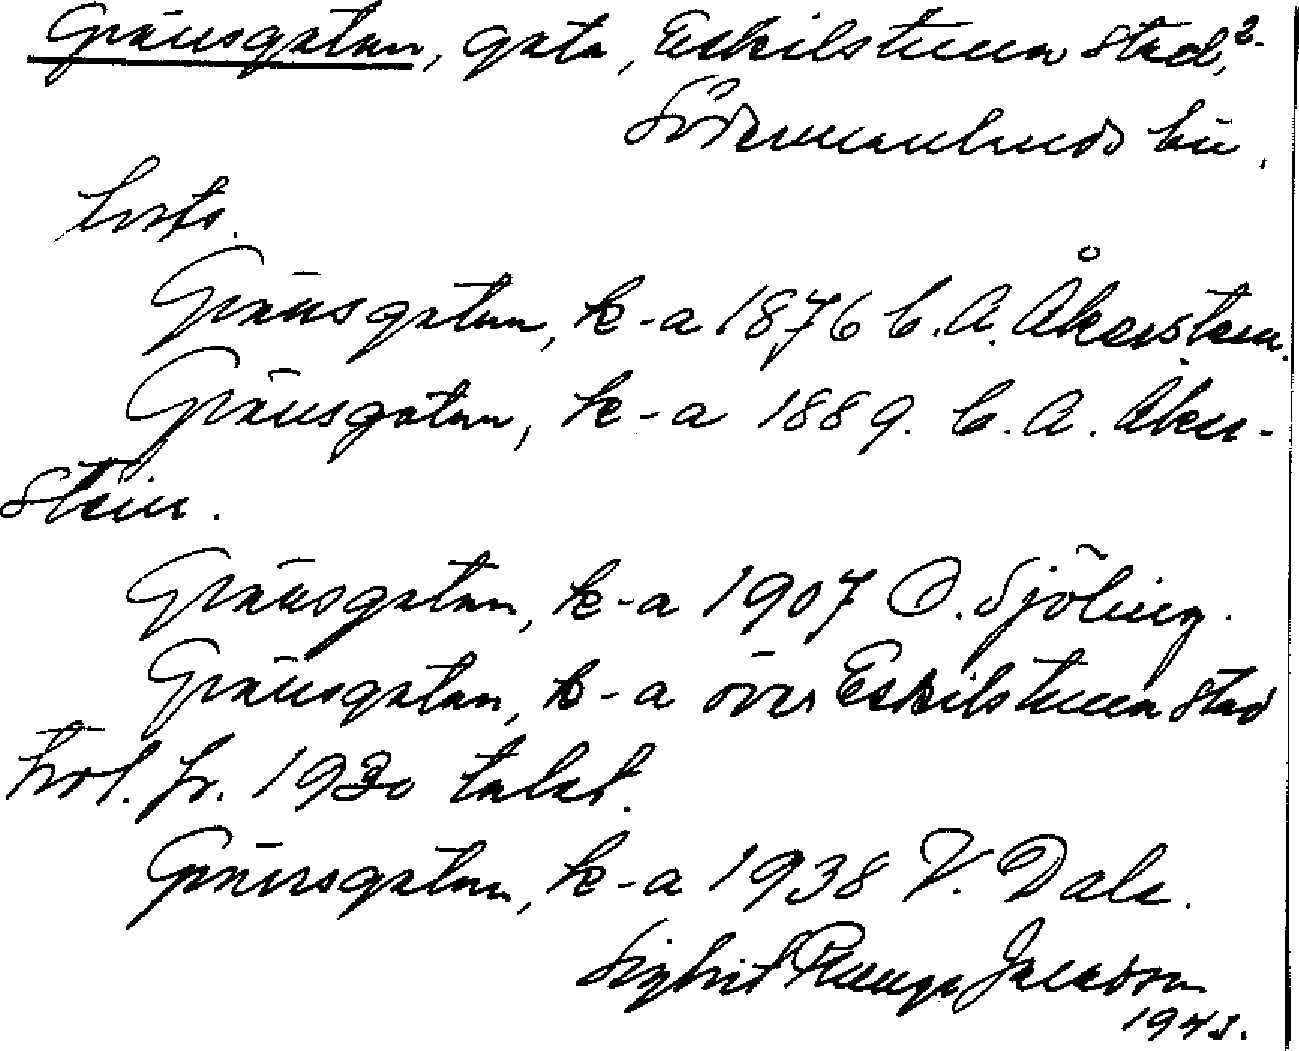 Gränsgatan, gata, Eskilstuna stad, 2.
Södermanlands län.
Gränsgatan, k-a 1876 C. A. Åkerstein.
Gränsgatan, k-a 1889. C. A. Åker-
stein.
Gränsgatan, k-a 1907 O. Sjöling.
Gränsgatan, k-a över Eskilstuna stad
fr. 1930 talet.
Gränsgatan, k-a 1938 V. Dale.
Sigbrit Plange Jacobson